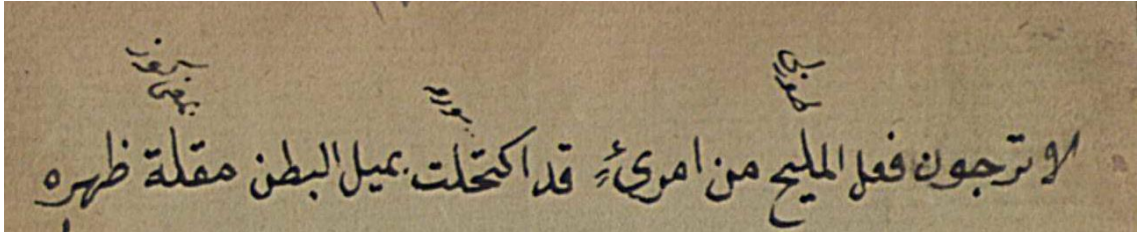 لا ترجون فعل المليح من امرئٍ قد اكتحلت بميل البطن مقلة ظهره